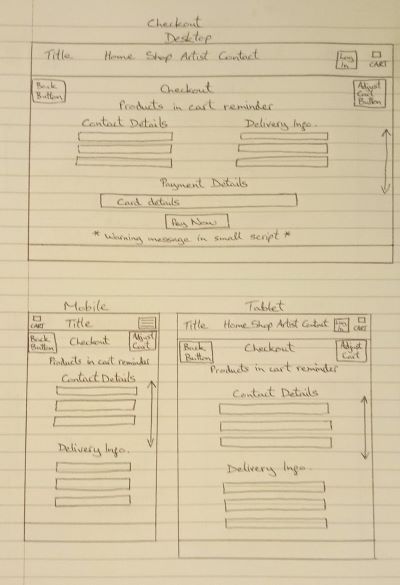 Checkout
Desktop
Title Home Shop Artist Contact Log In CART
Back Button Checkout Adjust Cart Button
Products in cart reminder
Contact Details Delivery Info.
Payment Details
Card details
Pay Now
* Warning message in small script *
Mobile
CART Title
Back Button Checkout Adjust Cart
Products in cart reminder
Contact Details
Delivery Info.
Tablet
Title Home Shop Artist Contact Log In CART
Back Button Checkout Adjust Cart
Products in cart reminder
Contact Details
Delivery Info.